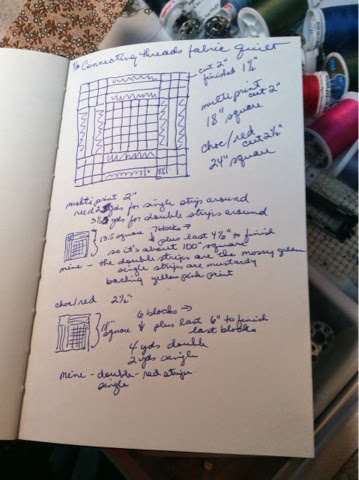 Connecting threads fabric quilt
cut 2"
finished 1½"
multi print
cut 2"
18" square
choc/red
cut 2½"
24" square
multi print 2"
yds for single strips around
yds for double strips around
13.5 square
7 blocks →
↓ plus last 4½" to finish
so it's about 100" square
mine - the double strips are the mossy green
single strips are mustardy
backing yellow pink print
choc/red 2½"
6 blocks →
18" square ↓ plus last 6" to finish
last blocks
4 yds double
2 yds single
mine - double - red stripe
single